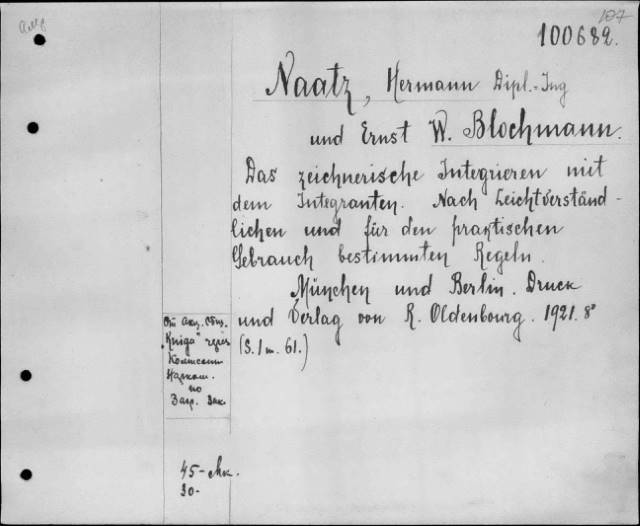 107
100682.
Naatz, Hermann Dipl.-Ing
und Ernst W. Blochmann.
Das zeichnerische Integrieren mit
dem Integranten. Nach Leichtverständ-
lichen und für den praktischen
Gebrauch bestimmten Regeln.
München und Berlin. Druck
und Verlag von R. Oldenbourg. 1921. 8°
(S. 1 m. 61.)
От Акц. Общ.
"Книга" через
Комиссии
Нарком.
по
Загр. Зак.
45- Mk.
30-